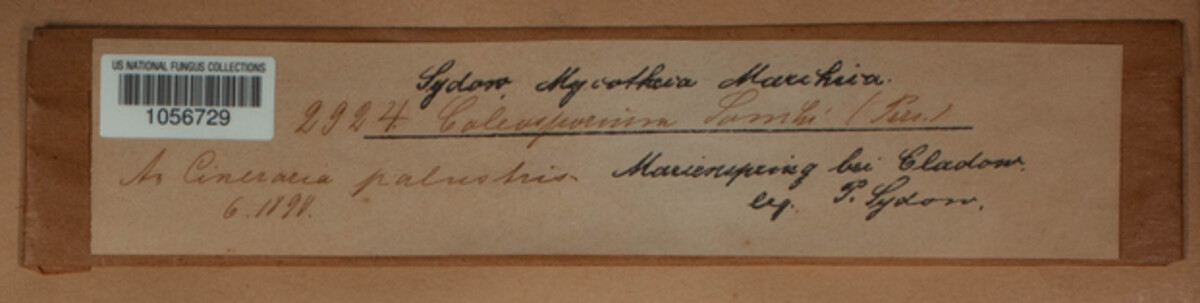 US NATIONAL FUNGUS COLLECTIONS
1056729
Sydow, Mycotheca Marchica.
2924. Coleosporium Sonchi (Pers.)
An Cineraria palustris
Marienspring bei Cladow.
6.1890.
leg. P. Sydow.